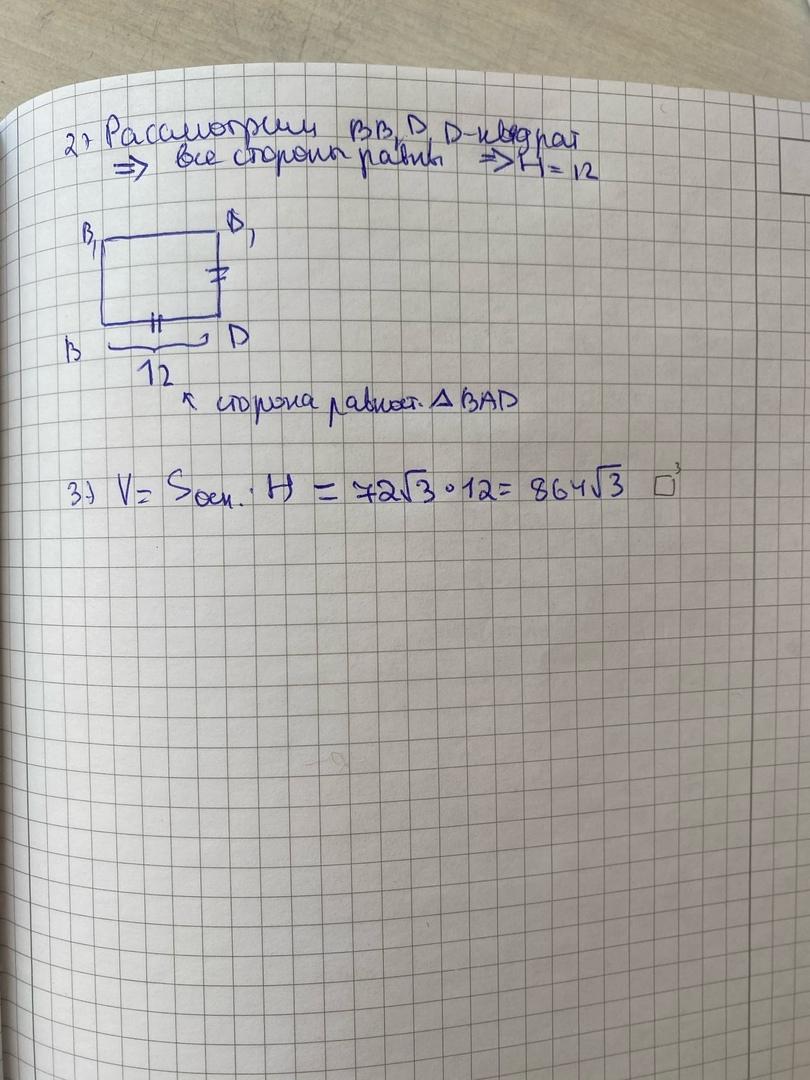 2) Рассмотрим BB₁D₁D-квадрат
⇒ все стороны равны ⇒ H = 12
B₁ D₁
B D
12
↖ сторона равност. △ BAD
3) V = Sосн. · H = 72√3 · 12 = 864√3 □³